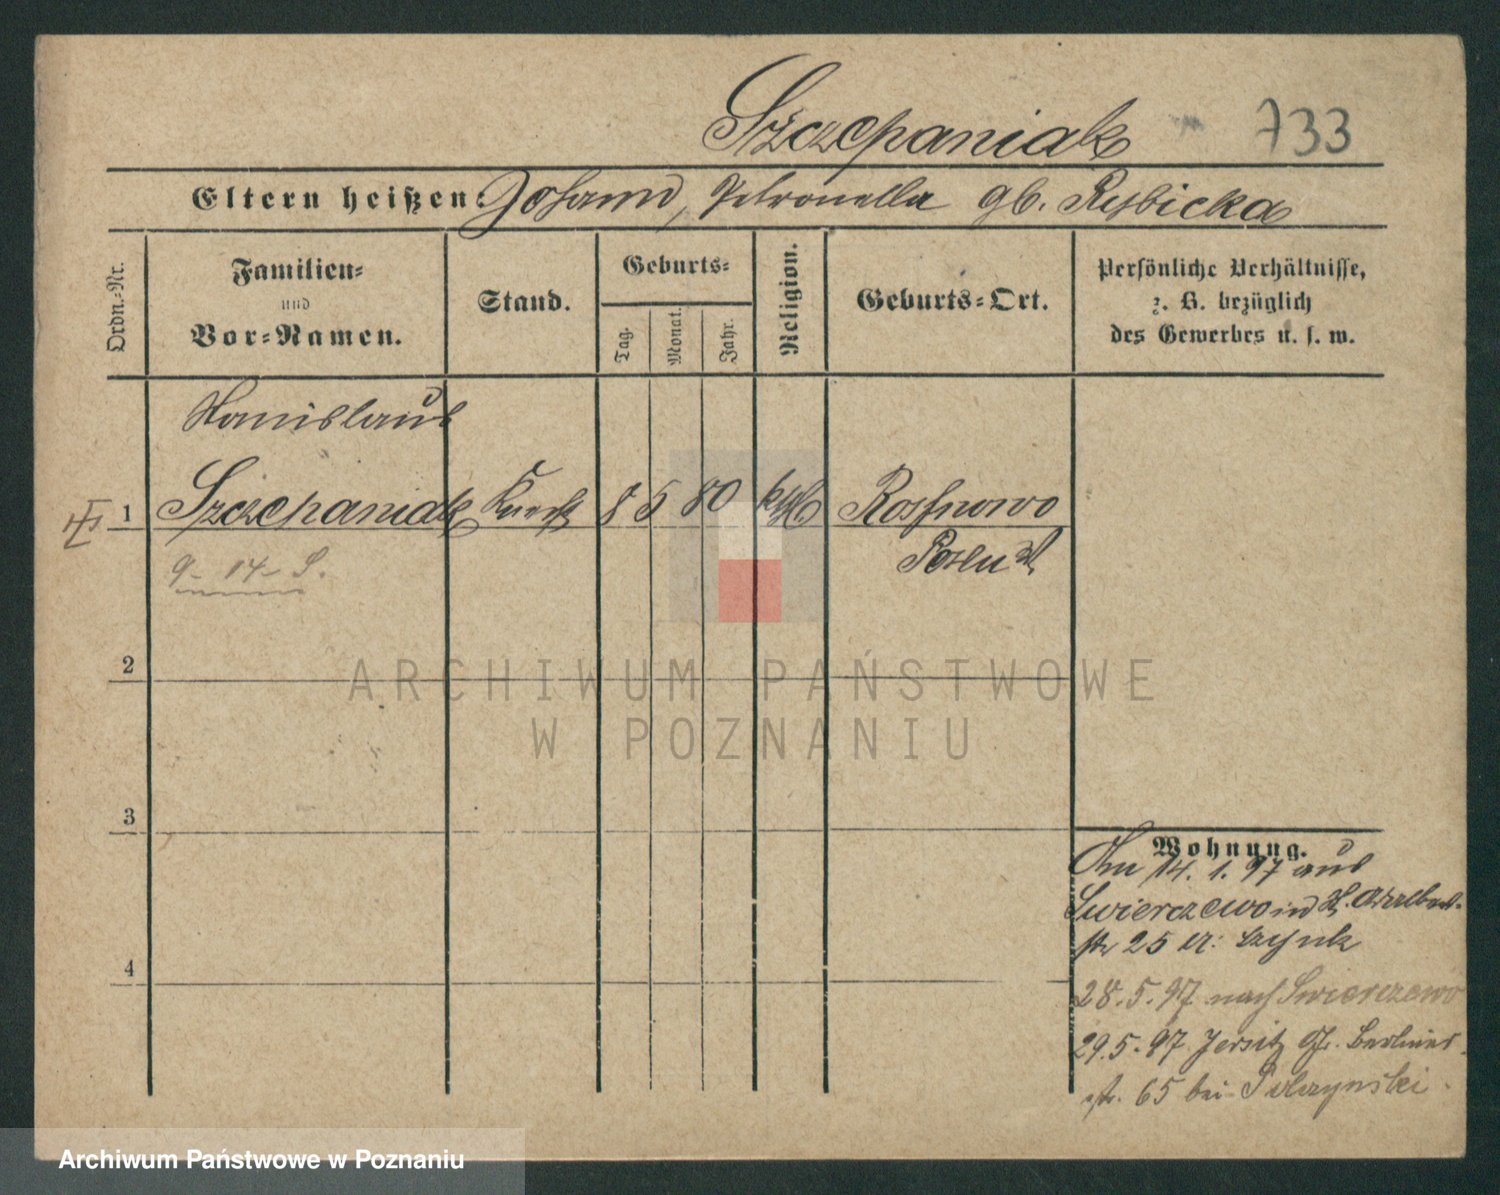 Szczepaniak 733
Eltern heißen: Johann, Petronella gb. Rybicka
Ordn.-Nr.
Familien-
und
Vor-Namen.
Stand.
Geburts-
Tag.
Monat.
Jahr.
Religion.
Geburts-Ort.
Persönliche Verhältnisse,
z. B. bezüglich
des Gewerbes u. s. w.
Stanislaus
1 Szczepaniak Knecht 8 5 80 kath Rosnowo
Posen W
9 - 14 - S.
2
3
4
Wohnung.
Am 14. 1. 97 aus
Swierczewo in St. Adalbert-
str 25
28. 5. 97 nach Swierczewo
29. 5. 97 Jersitz Gr. Berliner-
str. 65 bei
ARCHIWUM PAŃSTWOWE
W POZNANIU
Archiwum Państwowe w Poznaniu